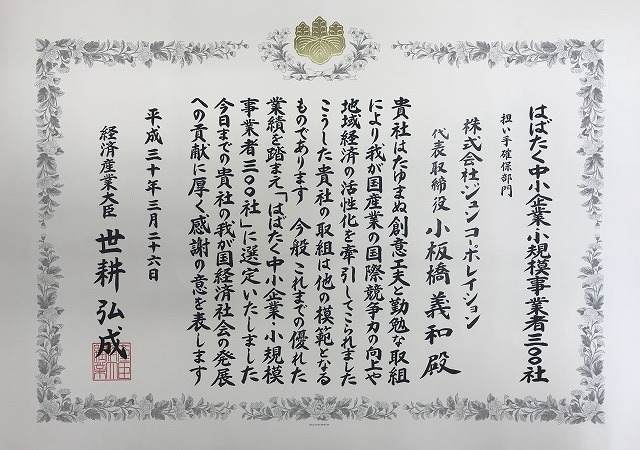 はばたく中小企業・小規模事業者三〇〇社
担い手確保部門
株式会社ジュンコーポレイション
代表取締役 小板橋 義和 殿
貴社はたゆまぬ創意工夫と勤勉な取組
により我が国産業の国際競争力の向上や
地域経済の活性化を牽引してこられました
こうした貴社の取組は他の模範となる
ものであります 今般 これまでの優れた
業績を踏まえ「はばたく中小企業・小規模
事業者三〇〇社」に選定いたしました
今日までの貴社の我が国経済社会の発展
への貢献に厚く感謝の意を表します
平成三十年三月二十六日
経済産業大臣 世耕 弘成